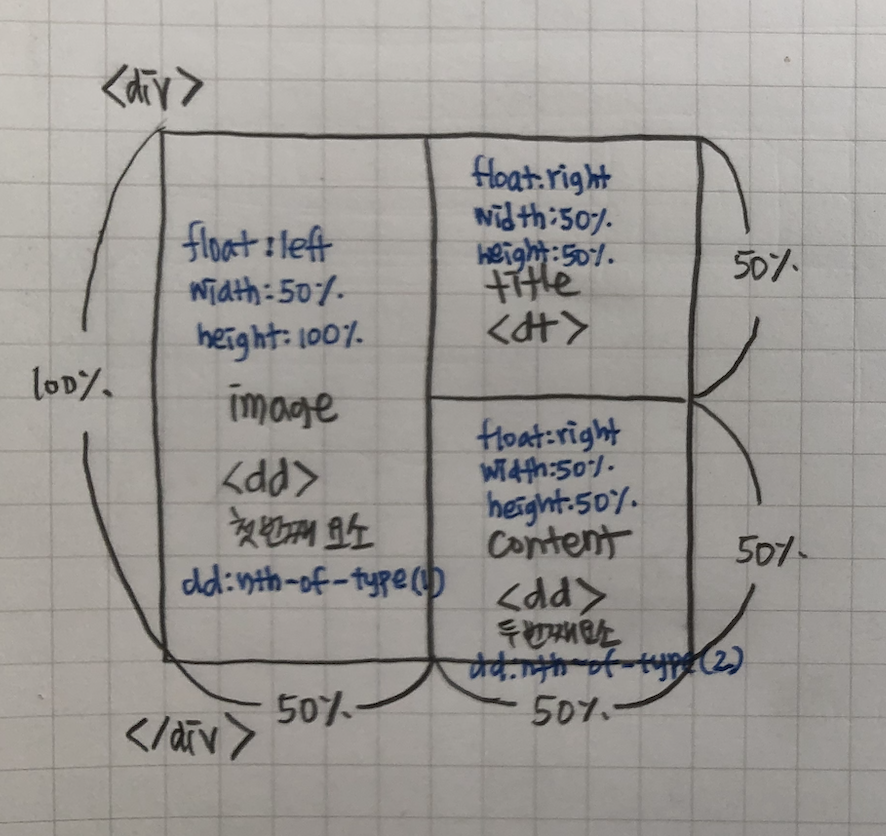 <div>
100%.
float:left
width:50%.
height:100%.
image
<dd>
첫번째 요소
dd:nth-of-type(1)
float:right
width:50%.
height:50%.
title
<dt>
50%.
float:right
width:50%.
height:50%.
content
<dd>
두번째요소
dd:nth-of-type(2)
50%.
50%.
50%.
</div>